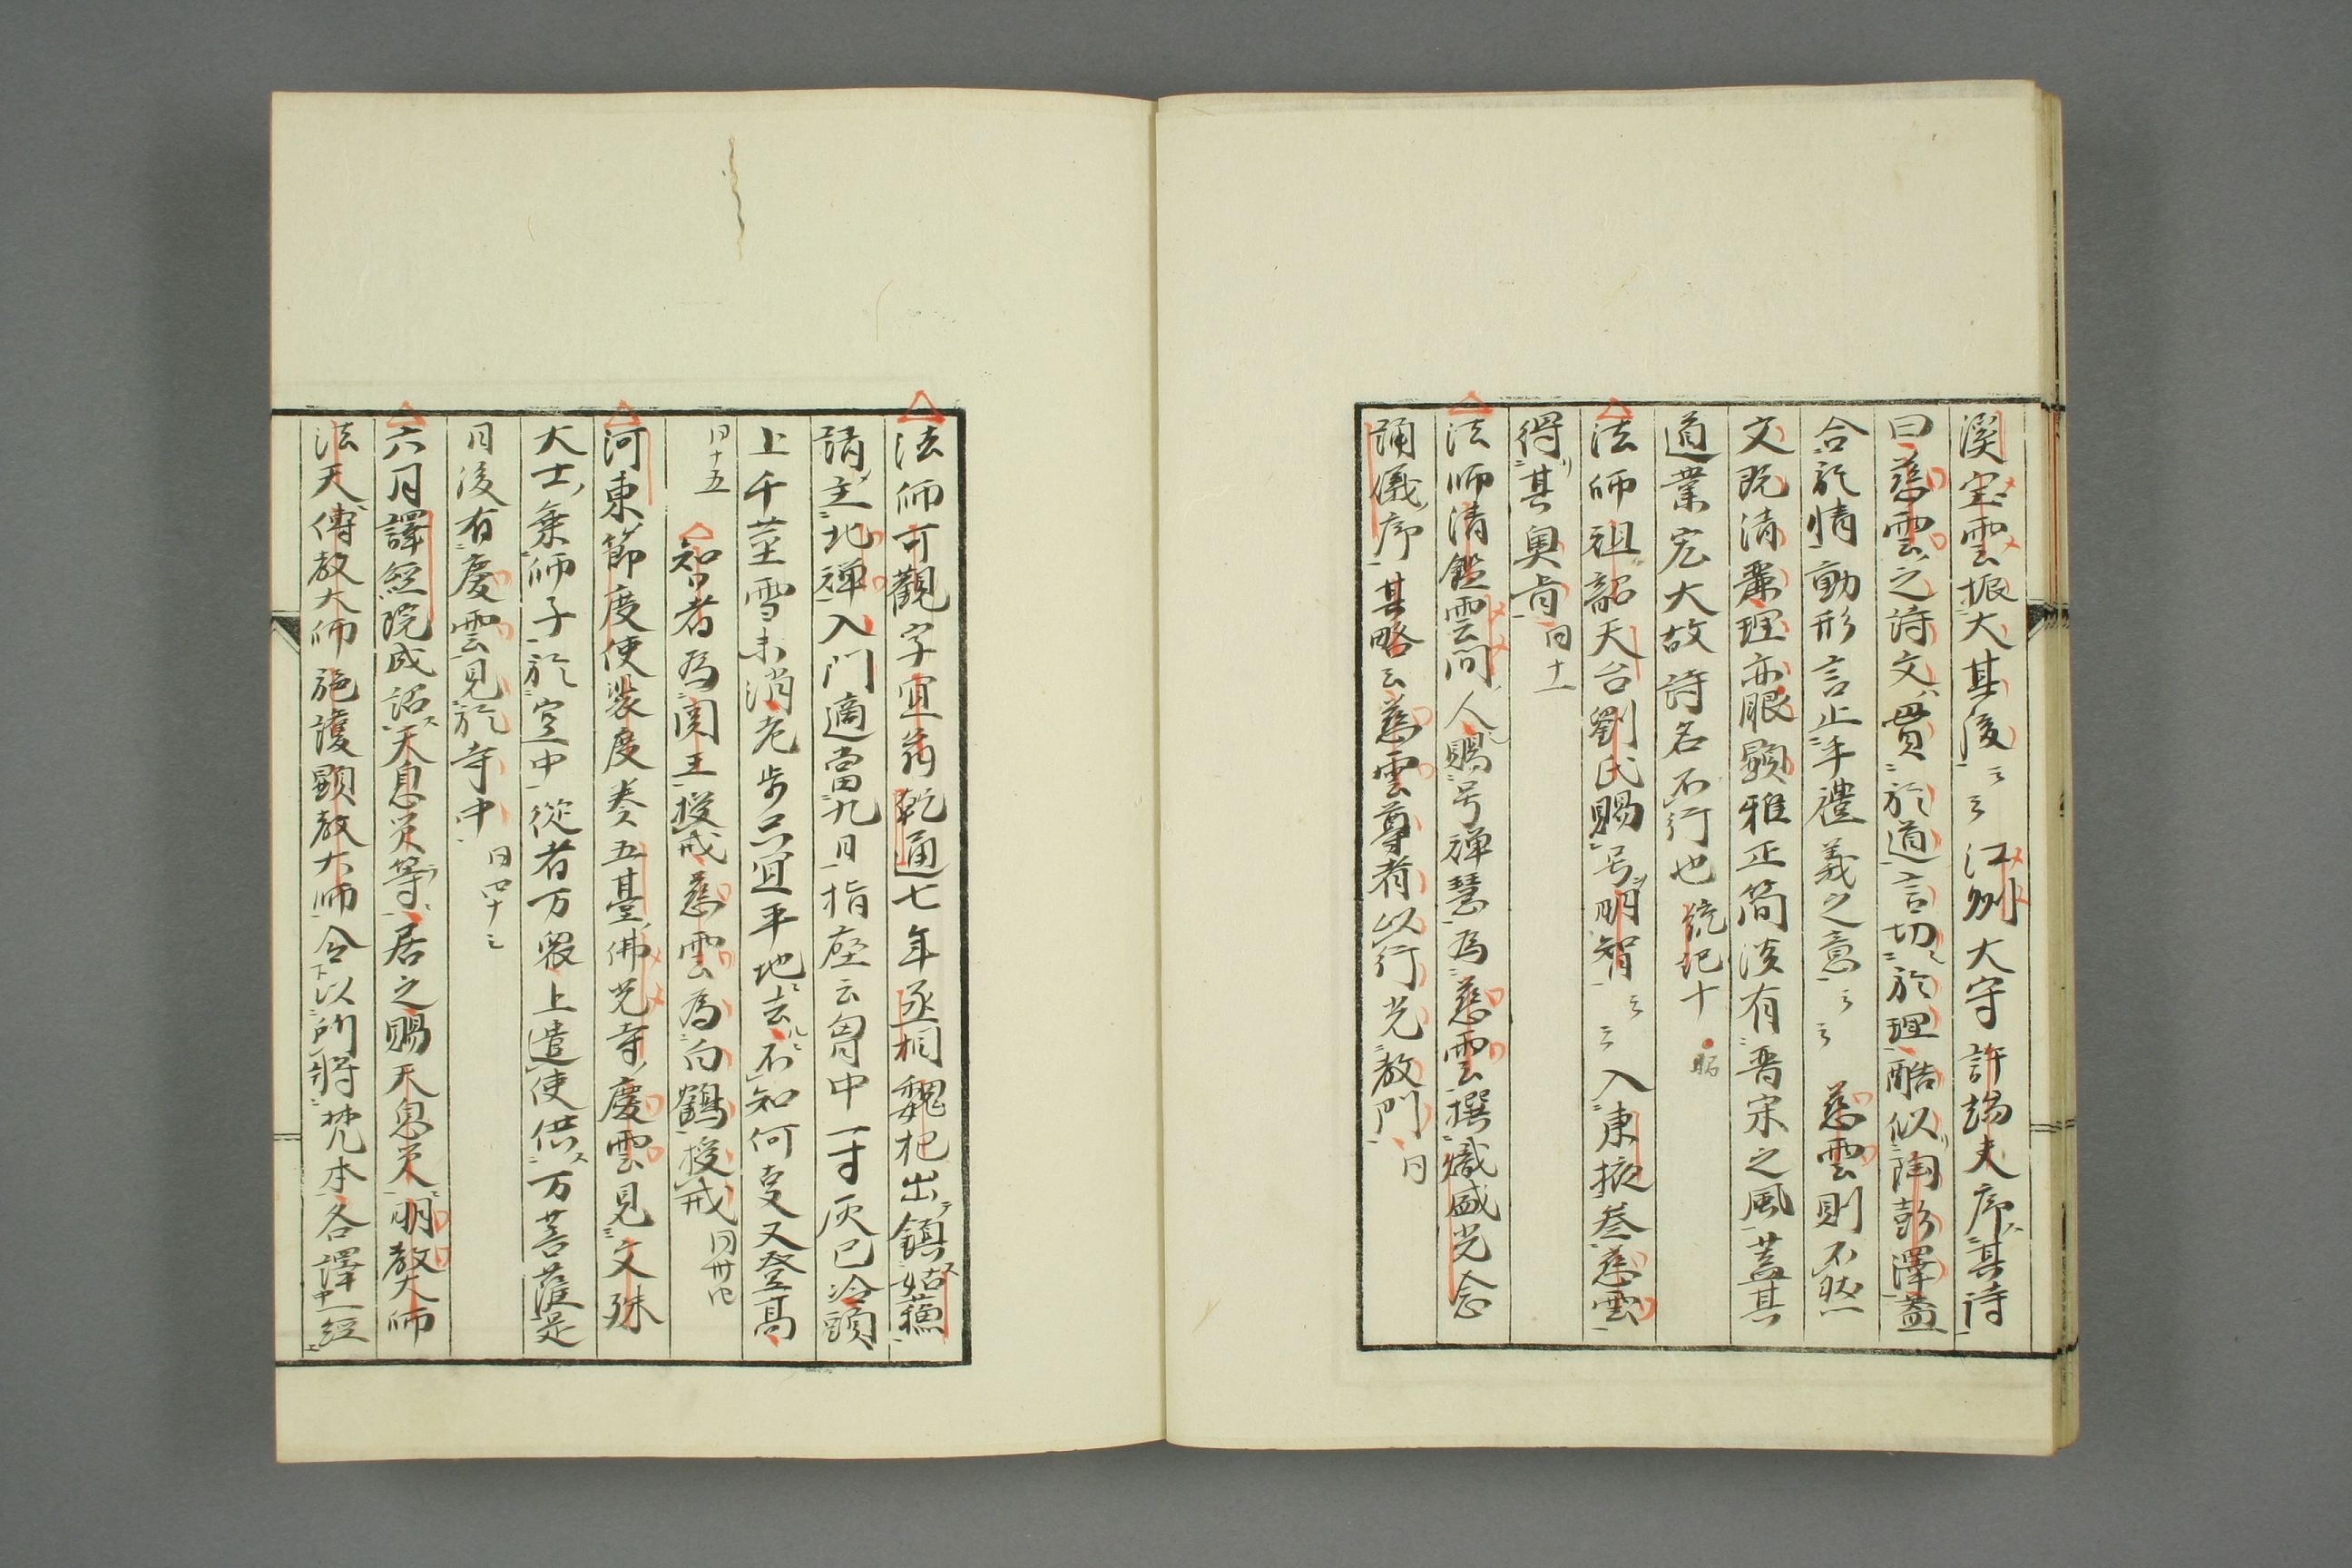 溪宝雲振大其後云云 江州大守許端夫序其詩
曰慈雲之詩文貫於道言切於理酷似陶彭澤蓋
合於情動形言止乎禮義之意云云 慈雲則不然
文既清麗理亦眼顕雅正簡淡有晋宋之風蓋其
道業宏大故詩名不行也 統記十
法師祖韶天台劉氏賜号明智云云 入東掖参慈雲
得其奥旨 同十一
法師清鑑雲間人賜号禅慧為慈雲撰熾盛光念
誦儀序其略云慈雲尊者以行光教門 同
法師可觀字宜翁乾道七年丞相魏杞出鎮姑蘓
請主北禅入門適當九日指座云胷中一寸灰已冷頭
上千茎雪未消老步只宜平地去不知何叓又登高
同十五 知者為関王授戒慈雲為白鶴授戒 同卅四
河東節度使裴度奏五臺佛光寺慶雲見文殊
大士乗師子於空中從者万衆上遣使供万菩薩是
日後有慶雲見於寺中 同四十三
六月譯經院成詔天息災等居之賜天息災明教大師
法天傳教大師施護顕教大師令以所将梵本各譯一經